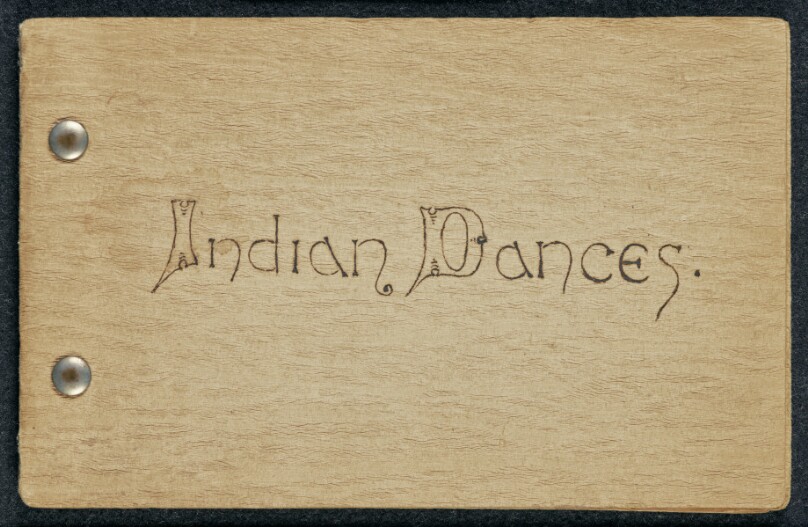 Indian Dances.